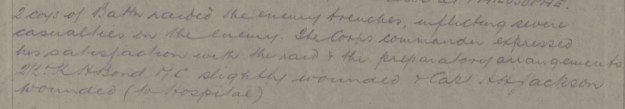 2 coys of Battn raided the enemy trenches, inflicting severe
casualties on the enemy. The Corps commander expressed
his satisfaction with the raid & the preparatory arrangements
H Bond M.C. slightly wounded & Capt. Jackson
wounded (to Hospital)